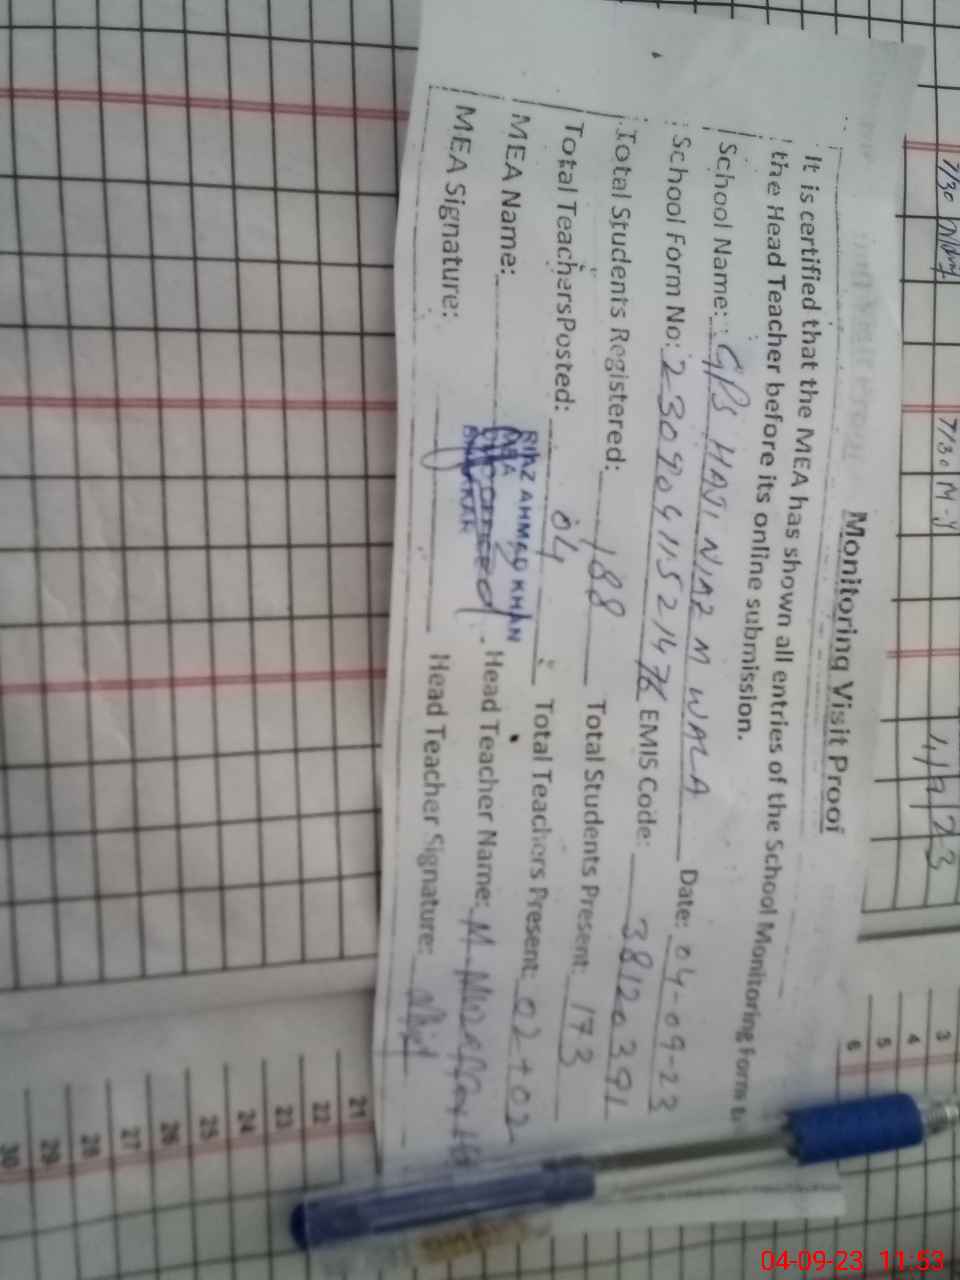 Monitoring Visit Proof
It is certified that the MEA has shown all entries of the School Monitoring Form to
the Head Teacher before its online submission.
School Name: GPS HAJI NIAZ M WALA Date: 04-09-23
School Form No: EMIS Code: 38120391
Total Students Registered: 188 Total Students Present: 173
Total Teachers Posted: 04 Total Teachers Present: 02+02
MEA Name: RIAZ AHMAD KHAN Head Teacher Name:
MEA
MEA Signature: Head Teacher Signature:
7/30
7/30 M-Y
4/9/23
3
4
5
6
21
22
23
24
25
26
27
28
29
30
04-09-23 11:53